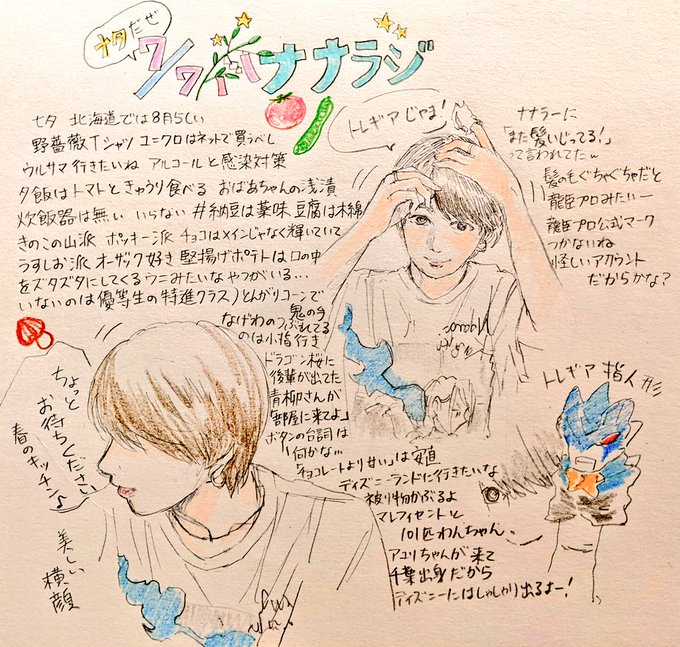 ナタだぜ
7/7 ナナラジ
七夕 北海道では8月5しい
野薔薇Tシャツ ユニクロはネットで買うべし
ウルサマ行きたいね アルコールと感染対策
夕飯はトマトときゅうり食べる おばあちゃんの浅漬
炊飯器は無い いらない #納豆は薬味 豆腐は木綿
きのこの山派 ポッキー派 チョコはメインじゃなく輝いていて
うすしお派 オーザック好き 堅揚げポテトは口の中
をズタズタにしてくる ウニみたいなやつがいる…
いないのは優等生の特進クラス)とんがりコーンで
鬼の手
なげわのつぶれてる
のは小指行き
ドラゴン桜に
後輩が出てた
青柳さんが
「部屋に来てよ」
ボタンの台詞は
何かな…
「チョコレートより甘い」は安直
ディズニーランドに行きたいな
被り物かぶるよ
マレフィセントと
101匹わんちゃん、
アユリちゃんが来て
千葉出身だから
ディズニーにはしゃしゃり出るよー!
トレギアじゃま!
ナナラーに
「また髪いじってる!」
って言われてたw
髪の毛ぐちゃぐちゃだと
龍臣プロみたいー
龍臣プロ公式マーク
つかないね
怪しいアカウント
だからかな?
トレギア指人形
ちょっと
お待ちください
春のキッチン♪
美しい
横顔